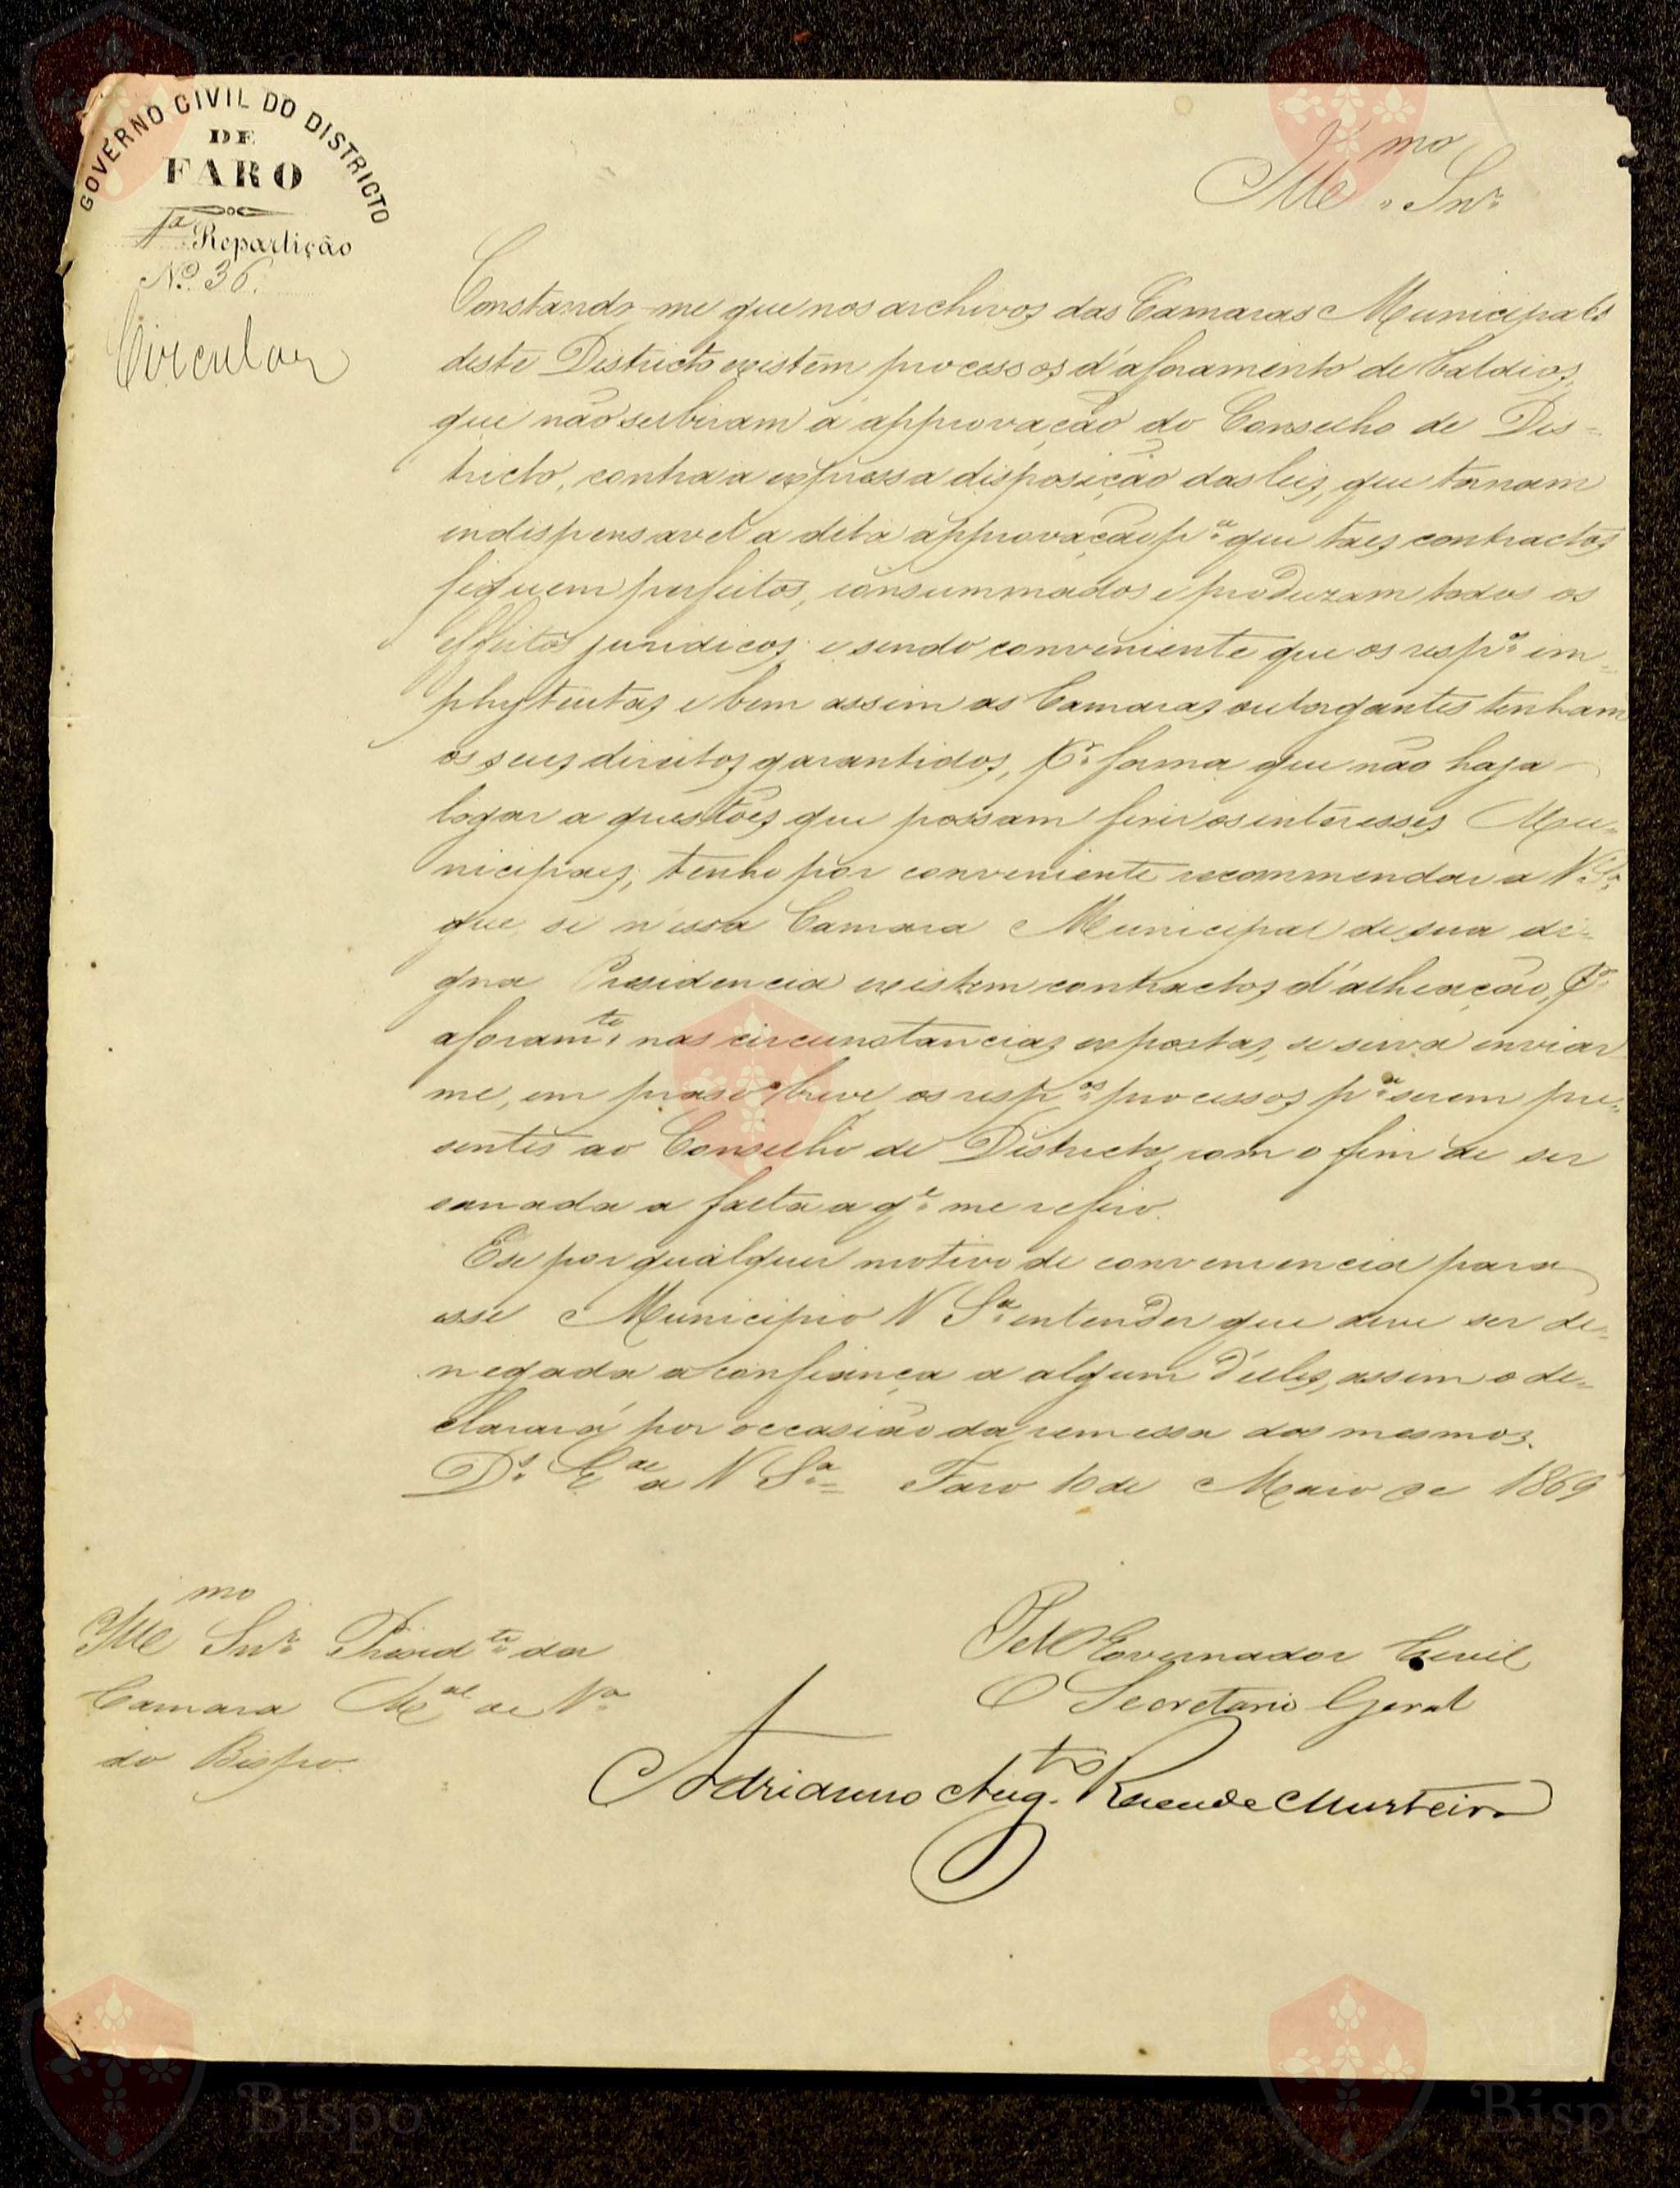 GOVERNO CIVIL DO DISTRICTO
DE
FARO
1ª Repartição
Nº 36.
Circular
Illmo Snr.
Constando-me que nos archivos das Camaras Municipaes
deste Districto existem processos d'aforamento de Baldios,
que não subiram á approvação do Conselho de Dis-
tricto, contra a expressa disposição das leis, que tornam
indispensavel a dita approvação pª que taes contractos
fiquem perfeitos, consummados e produzam todos os
effeitos juridicos; e sendo conveniente que os respos em-
phyteutas e bem assim as Camaras outorgantes tenham
os seus direitos garantidos, pr forma que não haja
logar a questões que possam ferir os interesses Mu-
nicipaes, tenho por conveniente recommendar a V. Sª
que, se n'essa Camara Municipal de sua di-
gna Presidencia existem contractos d'alheação, pr
aforamto nas circunstancias expostas, se sirva enviar
me, em praso breve, os respos processos pª serem pre-
sentes ao Conselho de Districto, com o fim de ser
sanada a falta a qe me refiro.
E se por qualquer motivo de conveniencia para
esse Municipio V Sª entender que deve ser de-
negada a confiança a algum d'elles, assim o de-
clarará por occasião da remessa dos mesmos.
Ds. Gde a V Sª Faro 10 de Maio de 1869
Illmo Snr. Presidte da
Camara Mal de Vª
do Bispo.
Pelo Governador Civil
O Secretario Geral
Adriano Augto Resende Murteira
Bispo
Vila do
Bispo